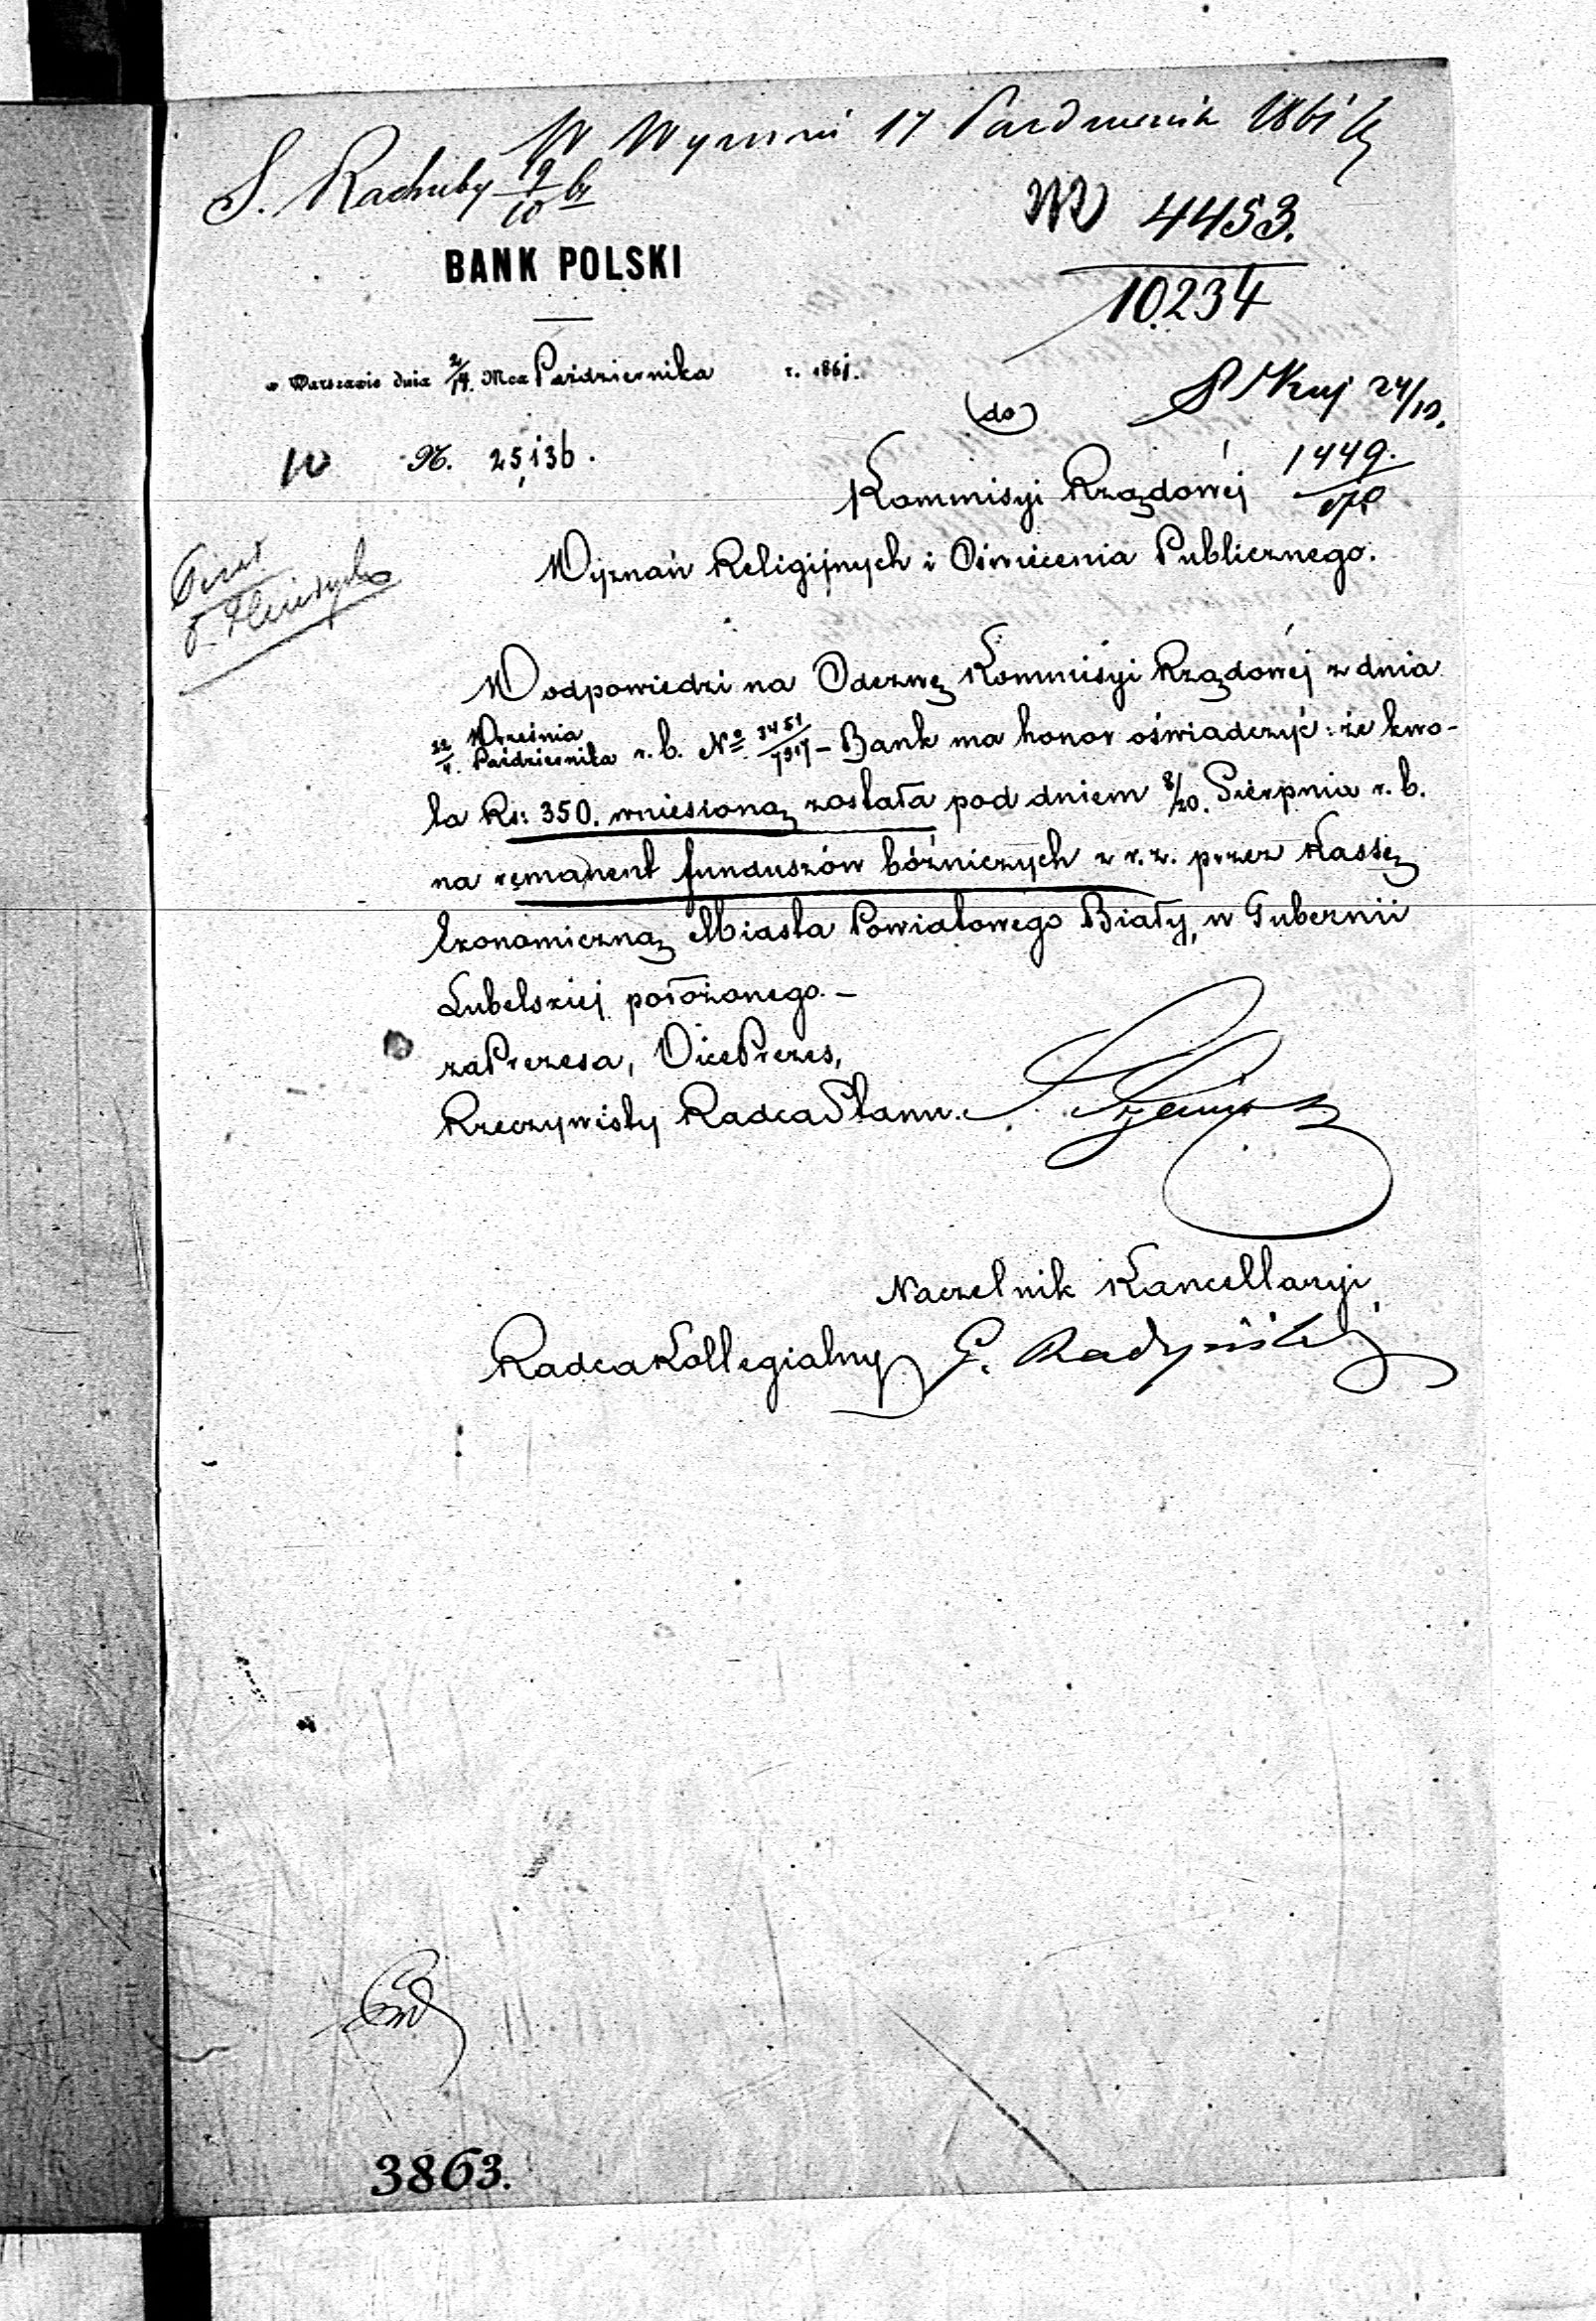 W Wyznań 17 Październik 1861 r
S. Rachuby 19/10 br
№ 4453.
10234
BANK POLSKI
w Warszawie dnia 2/14. Mca Października r. 1861.
24/10.
(do)
W № 25,136.
1449.
Kommisyi Rządowéj
Wyznań Religijnych i Oświecenia Publicznego.
W odpowiedzi na Odezwę Kommisyi Rządowéj z dnia
22/4. Września/Października r. b. № 3451/7917 – Bank ma honor oświadczyć: że kwo-
ta Rs: 350. wniesioną została pod dniem 8/20. Sierpnia r. b.
na remanent funduszów bóźniczych z r. z. przez Kassę
Ekonomiczną Miasta Powiatowego Biały, w Gubernii
Lubelskiej położonego. –
za Prezesa, Vice Prezes,
Rzeczywisty Radca Stanu.
Naczelnik Kancellaryi
Radca Kollegialny G. Radyński
3863.